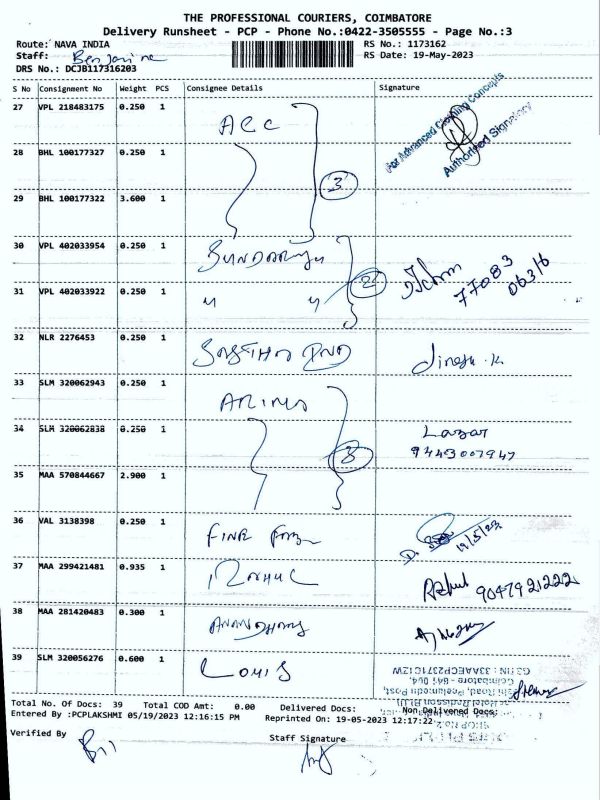 THE PROFESSIONAL COURIERS, COIMBATORE
Delivery Runsheet - PCP - Phone No.:0422-3505555 - Page No.:3
Route: NAVA INDIA RS No.: 1173162
Staff: RS Date: 19-May-2023
DRS No.: DCJB117316203
S No Consignment No Weight PCS Consignee Details Signature
27 VPL 218483175 0.250 1 ACC
For Advanced Clothing Concepts
Authorised Signatory
28 BHL 100177327 0.250 1
3
29 BHL 100177322 3.600 1
30 VPL 402033954 0.250 1
2
77083
06316
31 VPL 402033922 0.250 1 " "
32 NLR 2276453 0.250 1 dinesh.k
33 SLM 320062943 0.250 1
34 SLM 320062838 0.250 1 Lazar
3 9443007947
35 MAA 570844667 2.900 1
36 VAL 3138398 0.250 1 FINE 19/5/23
37 MAA 299421481 0.935 1 RAHUL Rahul 9047921222
38 MAA 281420483 0.300 1
39 SLM 320056276 0.600 1 LOUIS
GSTIN : 33AAECP2371C1ZW
Coimbatore - 641 004.
Road, Peelamedu Post,
Total No. Of Docs: 39 Total COD Amt: 0.00 Delivered Docs: Non Delivered Docs:
Entered By :PCPLAKSHMI 05/19/2023 12:16:15 PM Reprinted On :19-05-2023 12:17:22
Verified By Staff Signature